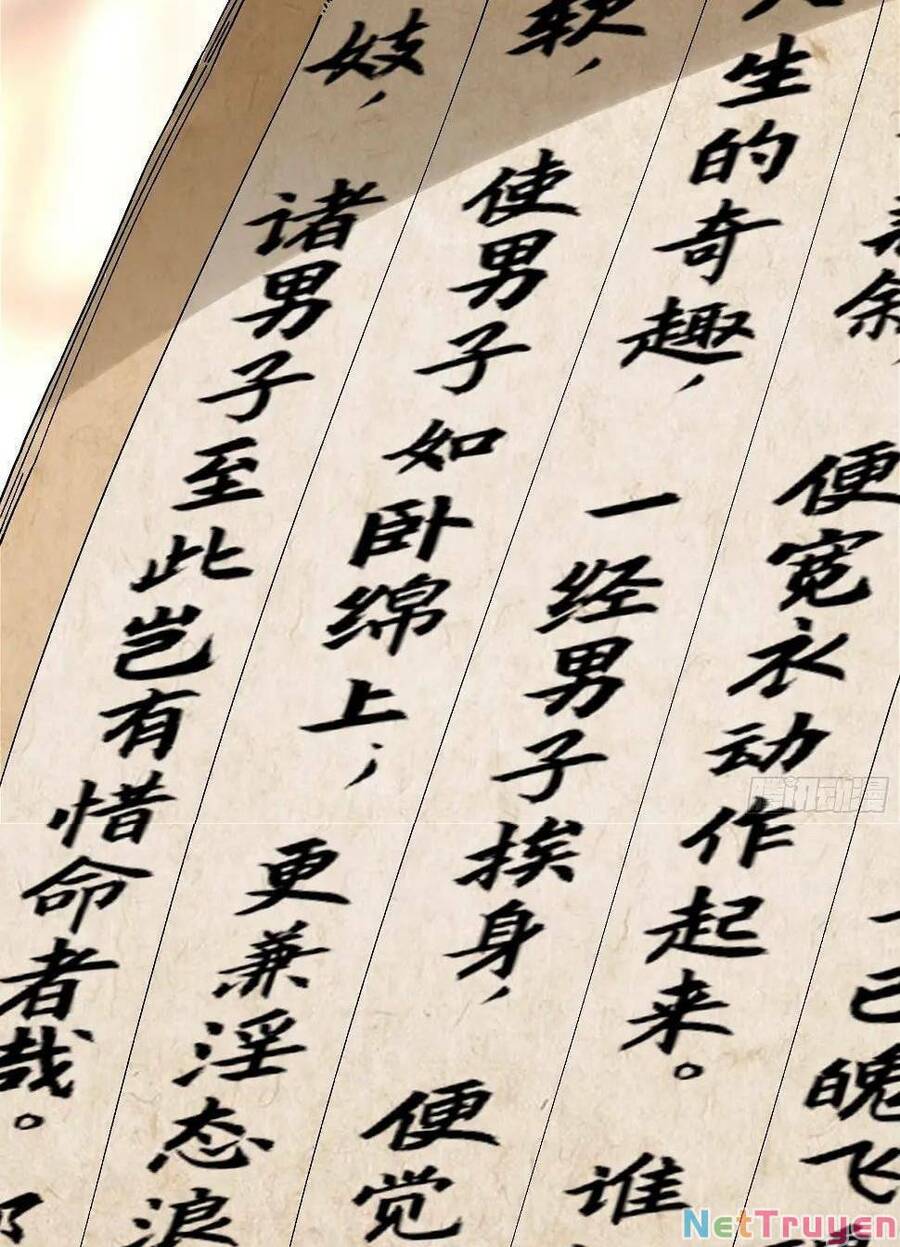 便宽衣动作起来。谁
生的奇趣，一经男子挨身，便觉
软，使男子如卧绵上；更兼淫态浪
妓，诸男子至此岂有惜命者哉。
腾讯动漫
NetTruyen